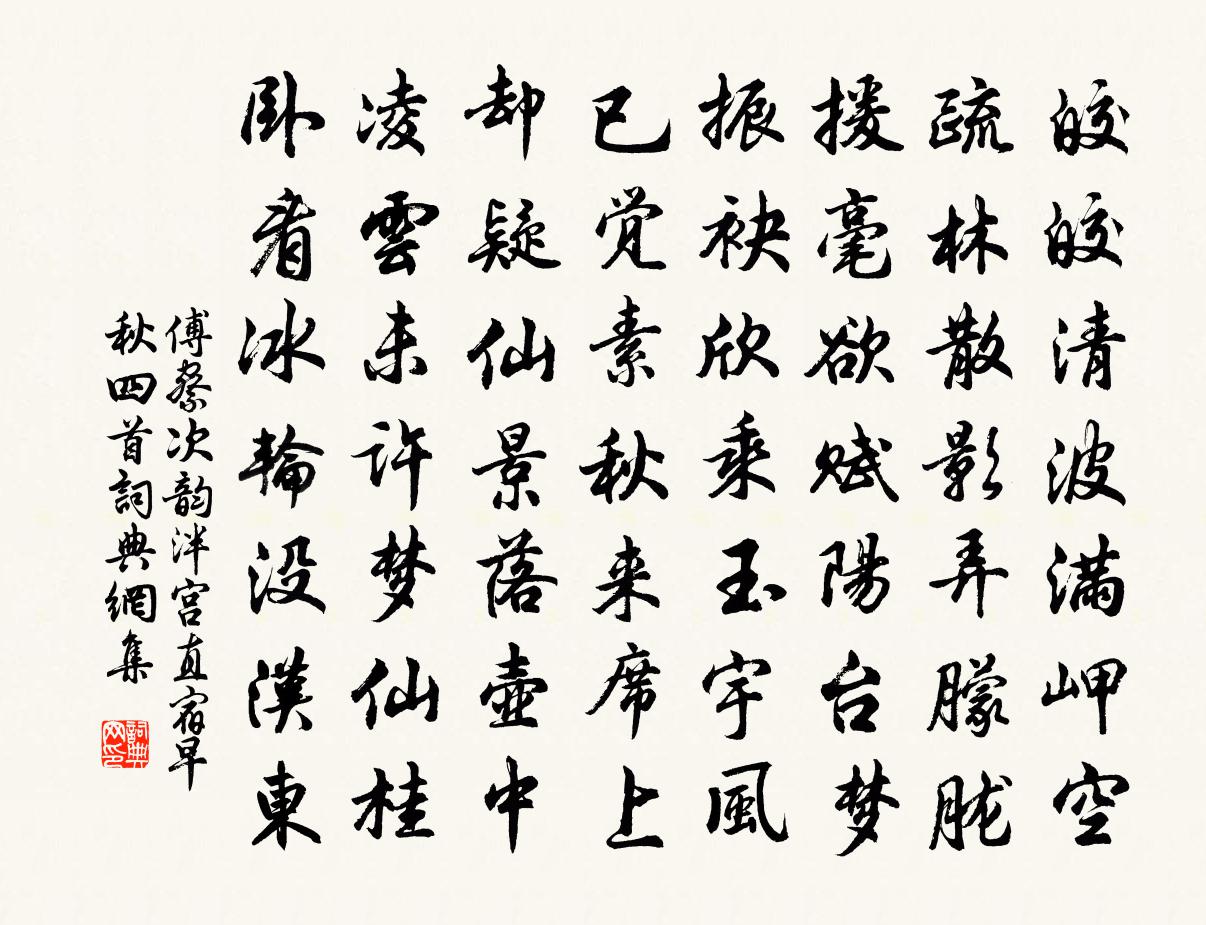 皎皎清波满岬空
疏林散影弄朦胧
援毫欲赋陽台梦
振袂欣乘玉宇風
已觉素秋来席上
却疑仙景落壶中
凌雲未许梦仙桂
卧看冰輪没漢東
傅察次韵泮宫直宿早
秋四首詞典網集
詞典
网印